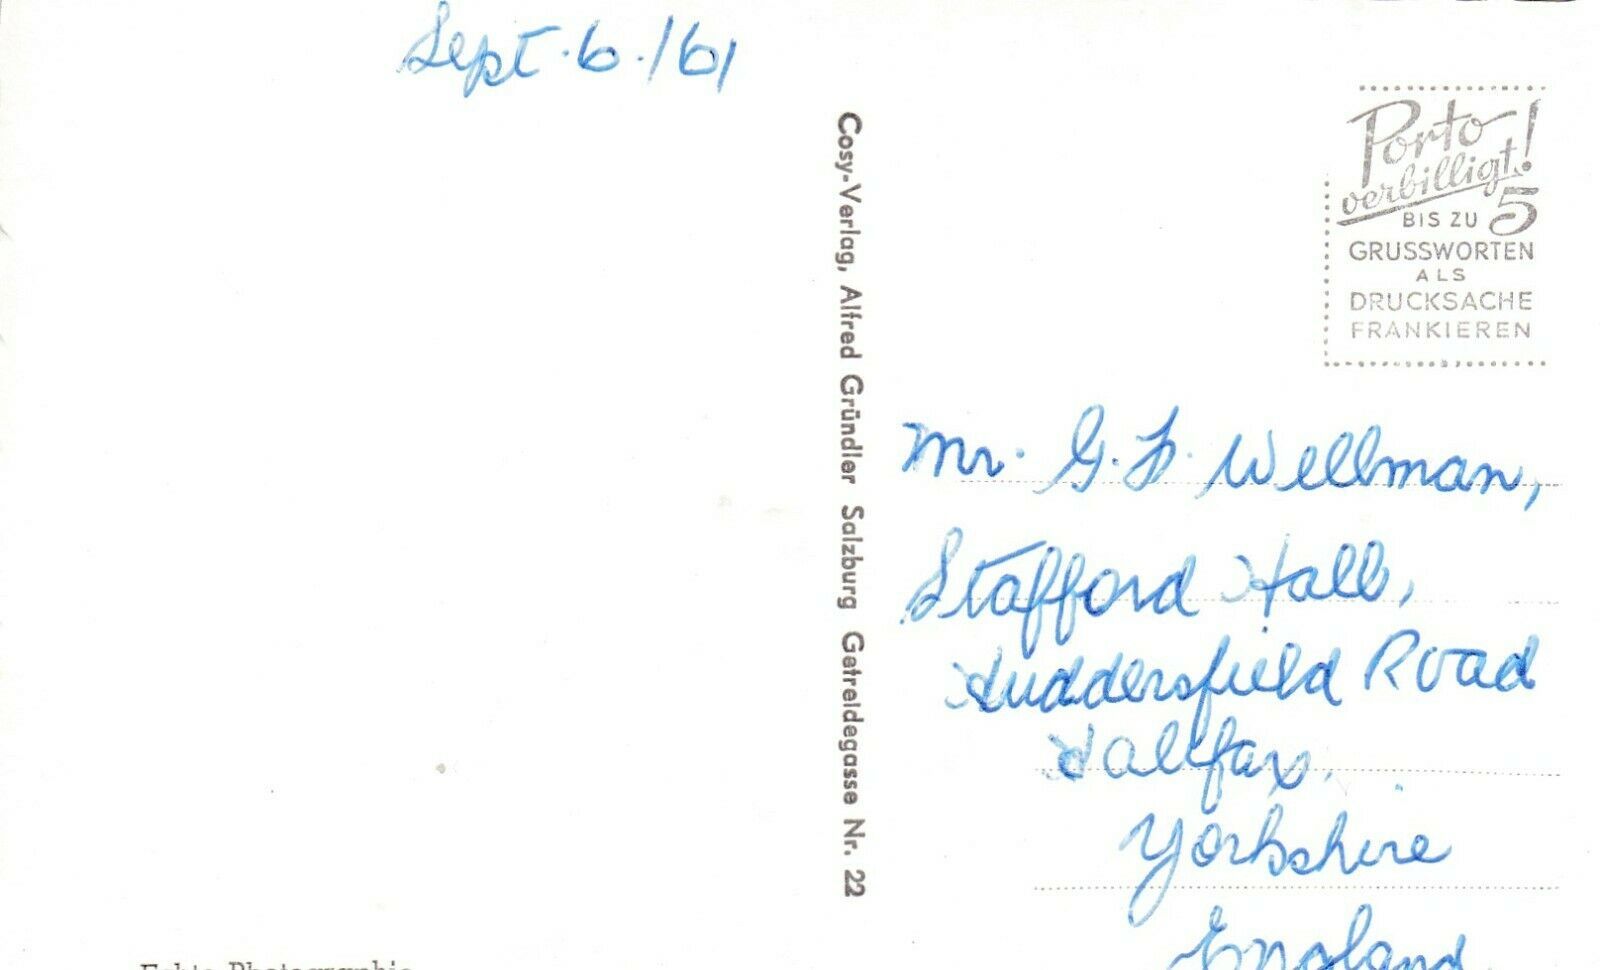 Sept. 6. /61
Echte Photographie
Cosy-Verlag, Alfred Gründler Salzburg Getreidegasse Nr. 22
Porto
verbilligt!
BIS ZU 5
GRUSSWORTEN
ALS
DRUCKSACHE
FRANKIEREN
Mr. G. F. Wellman,
Stafford Hall,
Huddersfield Road
Halifax,
Yorkshire
England.